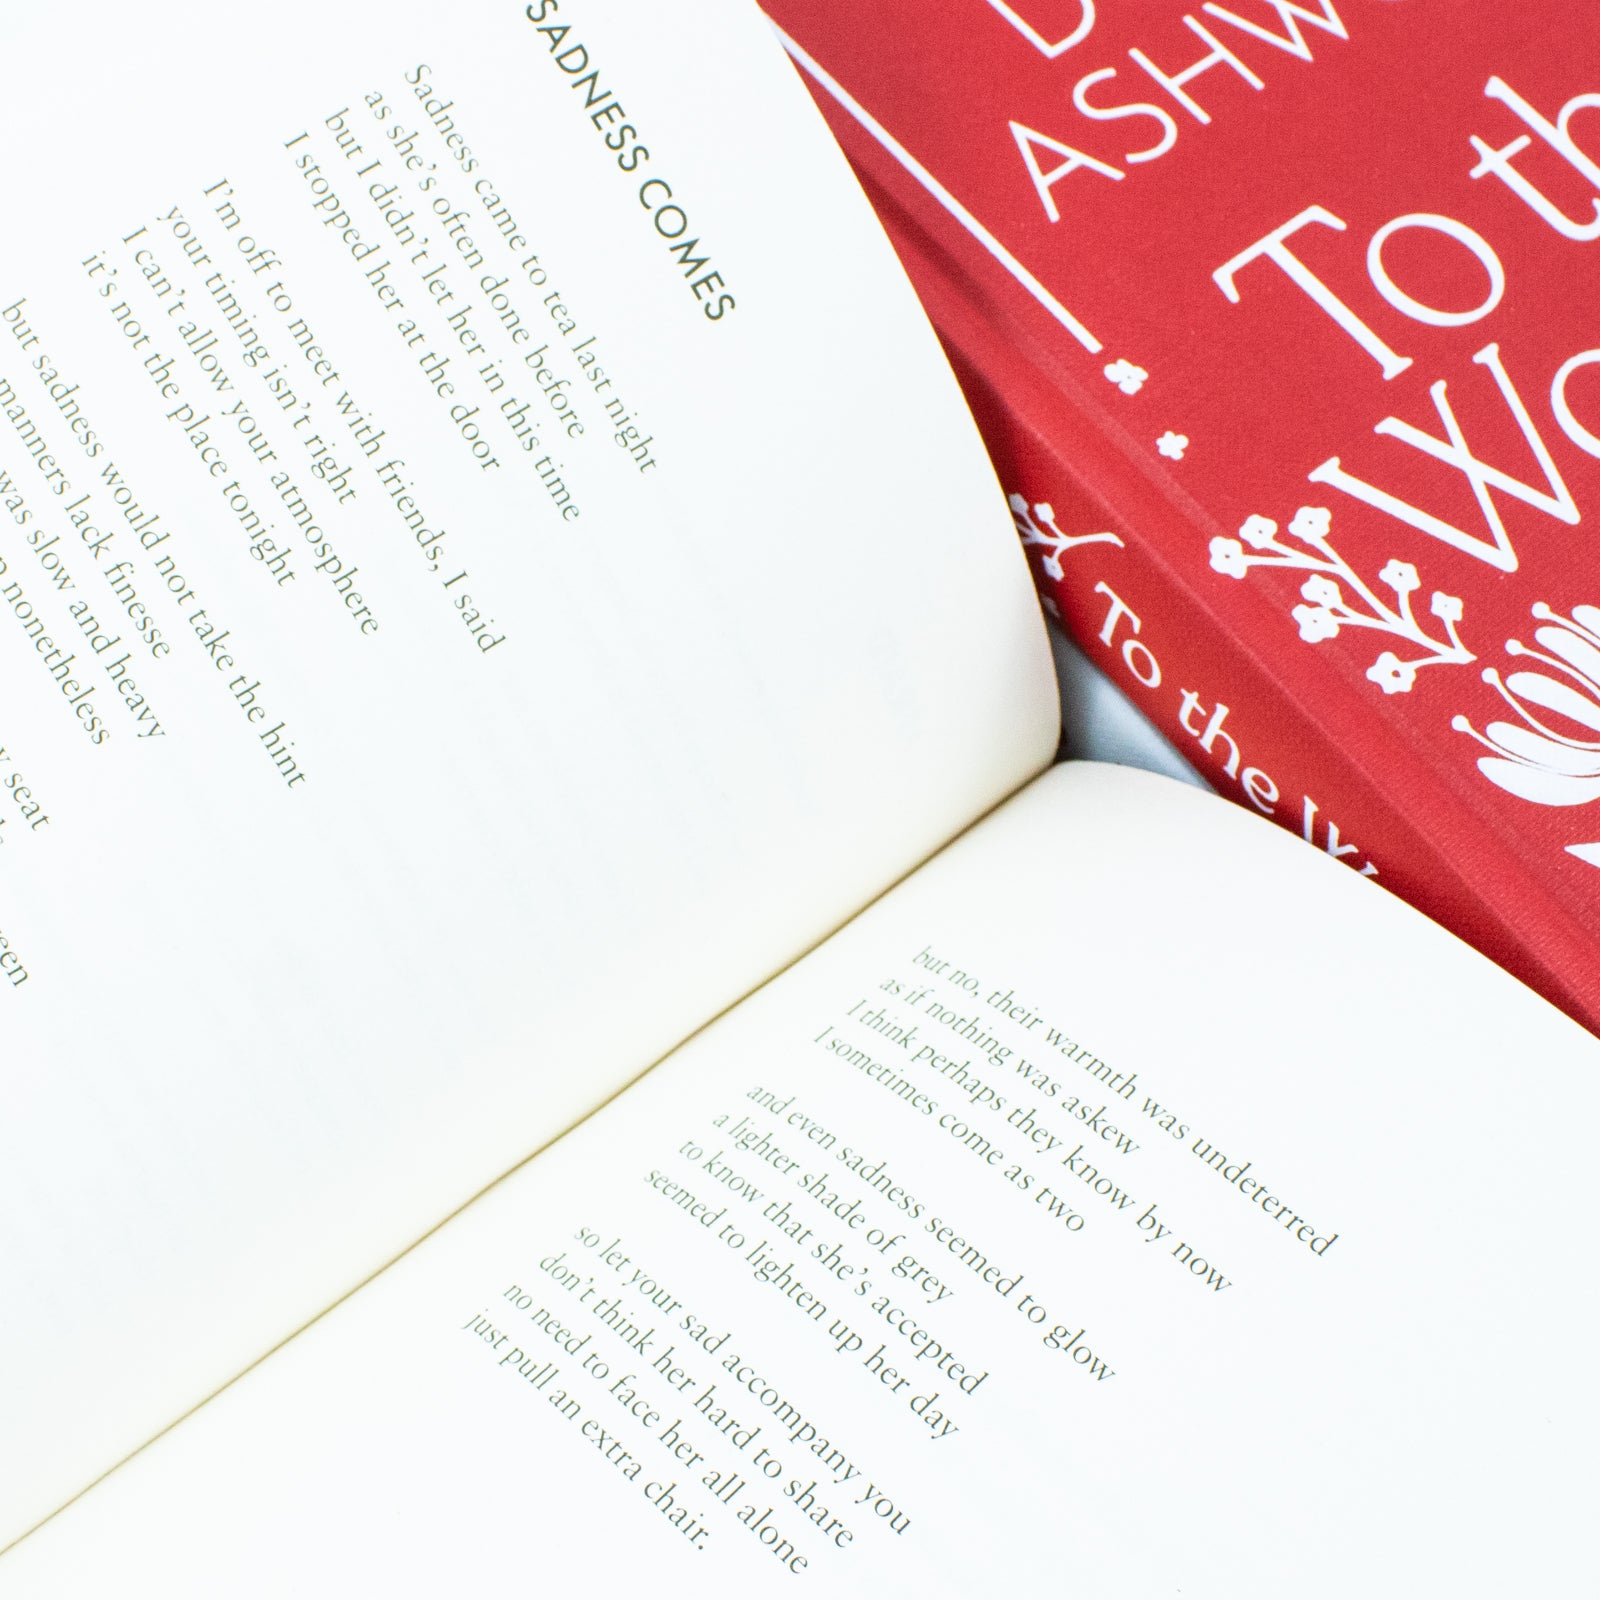 SADNESS COMES
Sadness came to tea last night
as she's often done before
but I didn't let her in this time
I stopped her at the door
I'm off to meet with friends, I said
your timing isn't right
I can't allow your atmosphere
it's not the place tonight
but sadness would not take the hint
manners lack finesse
was slow and heavy
nonetheless
seat
but no, their warmth was undeterred
as if nothing was askew
I think perhaps they know by now
I sometimes come as two
and even sadness seemed to glow
a lighter shade of grey
to know that she's accepted
seemed to lighten up her day
so let your sad accompany you
don't think her hard to share
no need to face her all alone
just pull an extra chair.
To the
To